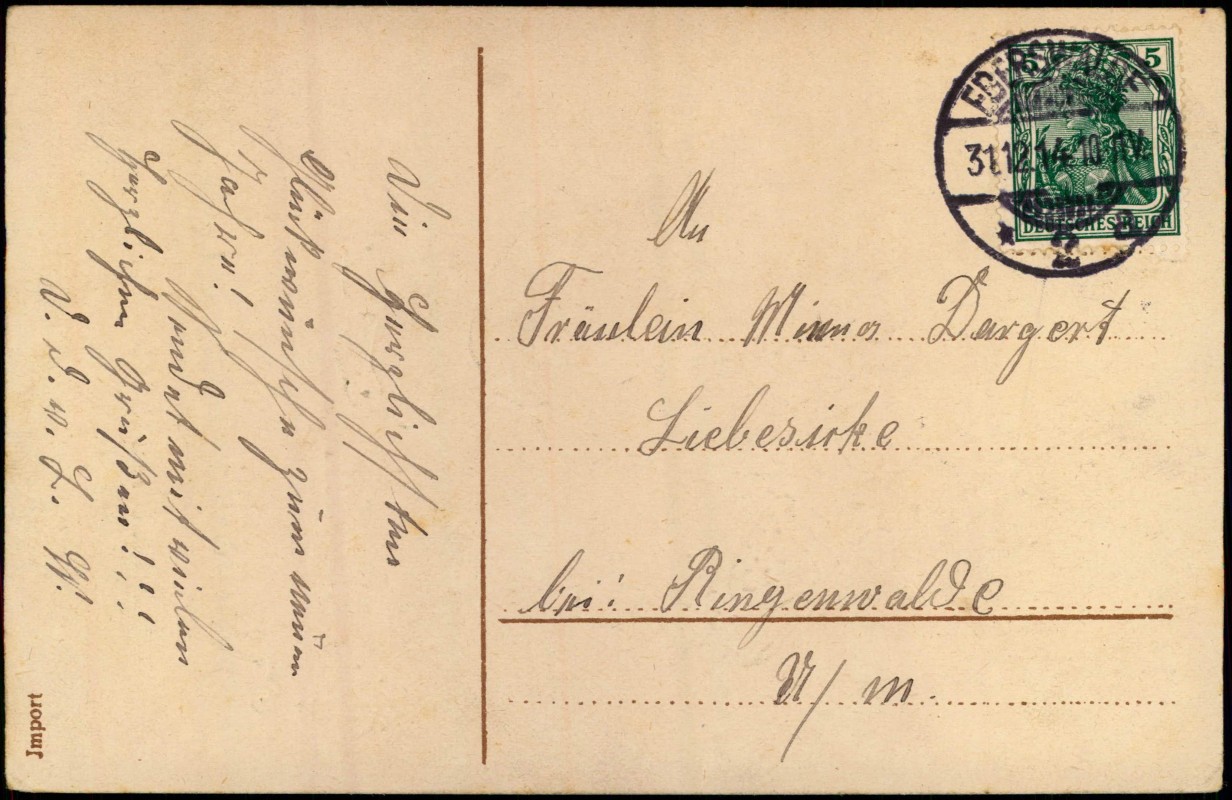 Die herzlichsten
Glückwünsche zum neuen
Jahre!
Sendet mit vielen
herzlichen Grüßen!!!
W.
Import
5 5
EBERSWALDE
31.12.14.10-11V.
* 2 a
DEUTSCHES REICH
An
Fräulein Minna Dargert
Liebesicke
bei: Ringenwalde
U/m.